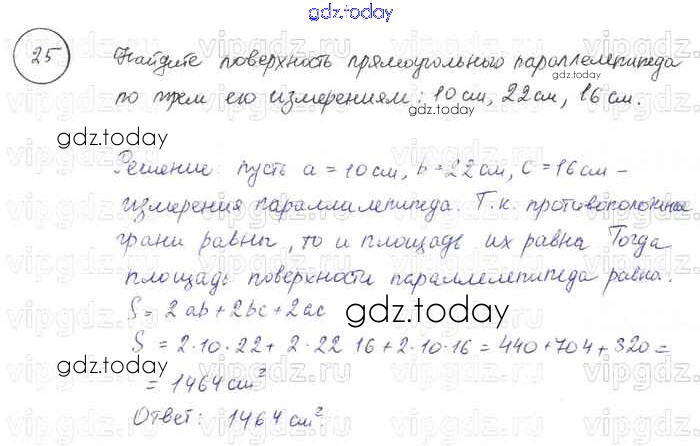 gdz.today
25 Найдите поверхность прямоугольного параллелепипеда
gdz.today
по трем его измерениям: 10 см, 22 см, 16 см.
gdz.today
Решение: пусть a = 10 см, b = 22 см, c = 16 см -
измерения параллилепипеда. Т.к. противоположные
грани равны, то и площадь их равна Тогда
площадь поверхности параллелепипеда равна:
S = 2ab + 2bc + 2ac
gdz.today
S = 2·10·22 + 2·22 16 + 2·10·16 = 440 + 704 + 320 =
= 1464 см²
gdz.today
Ответ: 1464 см².